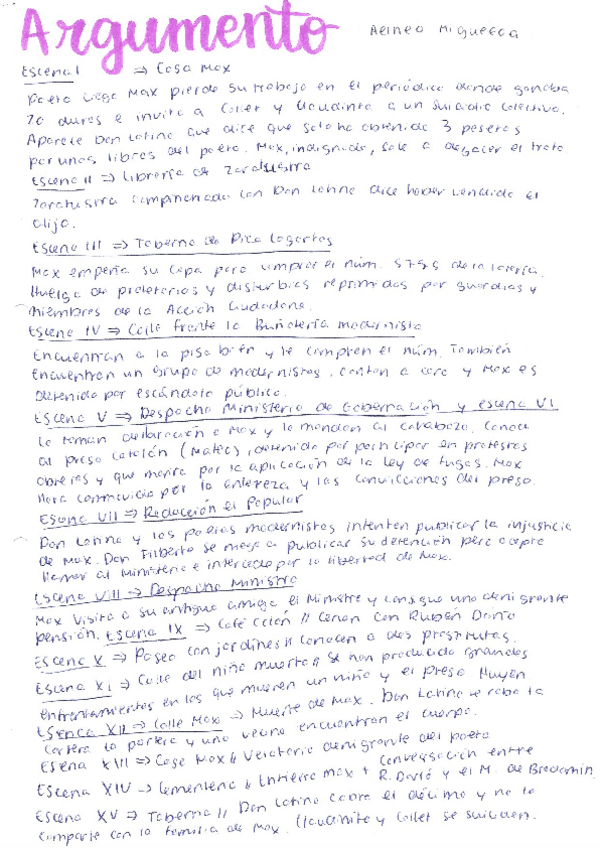 Argumento
Escena I ⇒ Casa Max
Poeta ciego Max pierde su trabajo en el periódico donde ganaba
20 duros e invita a Collet y Claudinita a un suicidio colectivo.
Aparece Don Latino que dice que solo ha obtenido 3 pesetas
por unos libros del poeta. Max, indignado, sale a deshacer el trato
Escena II ⇒ Librería de Zaratustra
Zaratustra compinchado con Don Latino dice haber vendido el
alijo.
Escena III ⇒ Taberna de Pica Lagartos
Max empeña su capa para comprar el núm. de la lotería.
Huelga de proletarios y disturbios reprimidos por guardias y
miembros de la Acción Ciudadana.
Escena IV ⇒ Calle frente la Buñolería modernista
Encuentran a la pisa bien y le compran el núm. También
encuentran un grupo de modernistas, cantan a coro y Max es
detenido por escándalo público.
Escena V ⇒ Despacho Ministerio de Gobernación y escena VI
Le toman declaración a Max y lo mandan al calabozo. Conoce
al preso catalán (Mateo), detenido por participar en protestas
obreras y que morirá por la aplicación de la ley de fugas. Max
llora conmovido por la entereza y las convicciones del preso.
Escena VII ⇒ Redacción el Popular
Don Latino y los poetas modernistas intentan publicar la injusticia
de Max. Don Filberto se niega a publicar su detención pero acepta
llamar al Ministerio e intercede por la libertad de Max.
Escena VIII ⇒ Despacho Ministro
Max visita a su antiguo amigo el Ministro y consigue una denigrante
pensión. Escena IX ⇒ Café Colón // Cenan con Rubén Darío
Escena X ⇒ Paseo con jardines // Conocen a dos prostitutas.
Escena XI ⇒ Calle del niño muerto // Se han producido grandes
enfrentamientos en los que mueren un niño y el preso. Huyen
Escena XII ⇒ Calle Max → Muerte de Max. Don Latino le roba la
cartera la portera y una vecina encuentran el cuerpo.
Escena XIII ⇒ Casa Max // Velatorio denigrante del poeta
Escena XIV → Cementerio // Entierro Max + Conversación entre R. Darío y el M. de Bradomín
Escena XV ⇒ Taberna // Don Latino cobra el décimo y no lo
comparte con la familia de Max. Claudinita y Collet se suicidan.